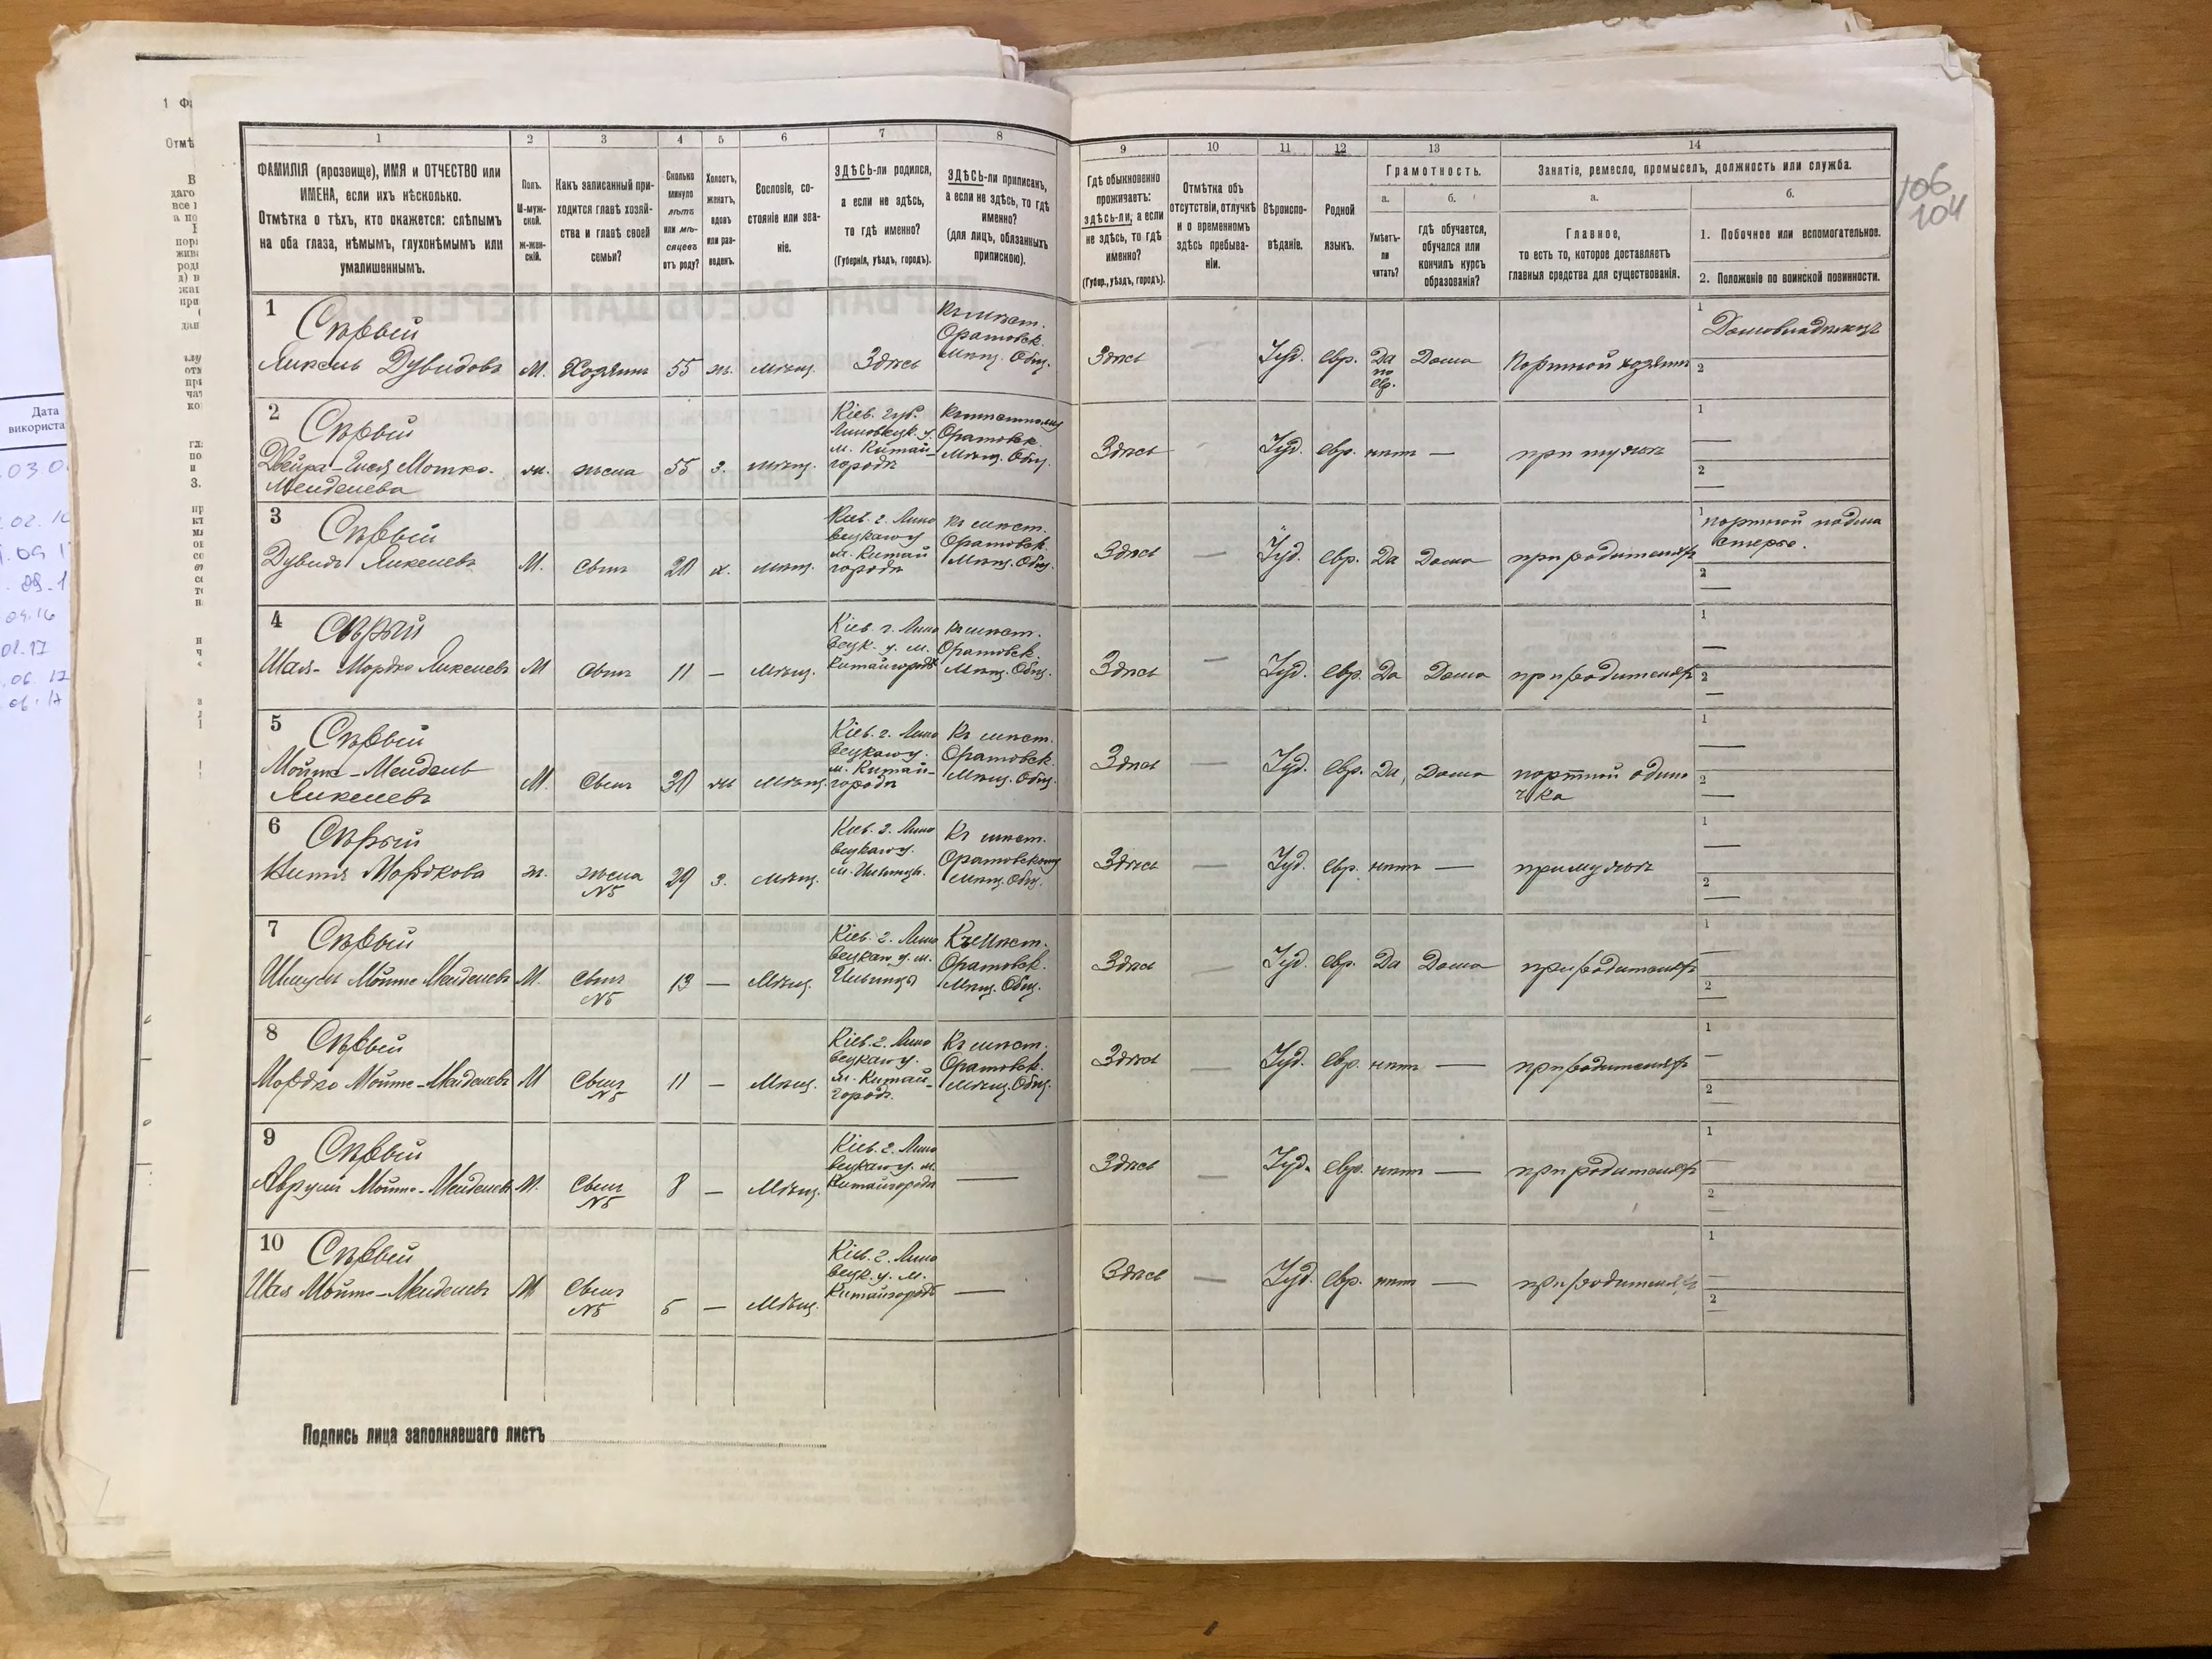 1 2 3 4 5 6 7 8 9 10 11 12 13 14
ФАМИЛІЯ (прозвище), ИМЯ и ОТЧЕСТВО или
ИМЕНА, если ихъ нѣсколько.
Отмѣтка о тѣхъ, кто окажется: слѣпымъ
на оба глаза, нѣмымъ, глухонѣмымъ или
умалишеннымъ.
Полъ.
М-муж-
ской.
ж-жен-
скій.
Какъ записанный при-
ходится главѣ хозяй-
ства и главѣ своей
семьи?
Сколько
минуло
лѣтъ
или мѣ-
сяцевъ
отъ роду?
Холостъ,
женатъ,
вдовъ
или раз-
веденъ.
Сословіе, со-
стояніе или зва-
ніе.
ЗДѢСЬ-ли родился,
а если не здѣсь,
то гдѣ именно?
(Губернія, уѣздъ, городъ).
ЗДѢСЬ-ли приписанъ,
а если не здѣсь, то гдѣ
именно?
(для лицъ, обязанныхъ
припискою).
Гдѣ обыкновенно
проживаетъ:
здѣсь-ли, а если
не здѣсь, то гдѣ
именно?
(Губер., уѣздъ, городъ).
Отмѣтка объ
отсутствіи, отлучкѣ
и о временномъ
здѣсь пребыва-
ніи.
Вѣроиспо-
вѣданіе.
Родной
языкъ.
Грамотность.
а.
Умѣетъ-
ли
читать?
б.
гдѣ обучается,
обучался или
кончилъ курсъ
образованія?
Занятіе, ремесло, промыселъ, должность или служба.
а.
Главное,
то есть то, которое доставляетъ
главныя средства для существованія.
б.
1. Побочное или вспомогательное.
2. Положеніе по воинской повинности.
106
104
1
Сѣрый
Ликель Дувидовъ
М. Хозяинъ 55 ж. Мѣщ. Здѣсь
Къ мѣст.
Оратовск.
Мѣщ. Общ.
Здѣсь — Іуд. евр. Да
по
евр.
Дома Портной хозяинъ
1 Домовладѣлецъ
2
2
Сѣрый
Двейра-Гися Мошко-
Менделева
ж. жена 55 з. Мѣщ.
Кіев. губ.
Липовецк. у.
м. Китай-
городъ
Оратовск.
Мѣщ. Общ.
Здѣсь — Іуд. евр. нѣтъ — при мужѣ
1 —
2 —
3
Сѣрый
Дувидъ Ликелевъ
М. Сынъ 20 х. Мѣщ.
Кіев. г. Липо
вецкаго у.
м. Китай
городъ
Къ мѣст.
Оратовск.
Мѣщ. Общ.
Здѣсь — Іуд. евр. Да Дома при родителяхъ
1 портной подма
стерье.
2
4
Сѣрый
Шая-Мордко Ликелевъ
М Сынъ 11 — Мѣщ.
Кіев. г. Липо
вецк. у. м.
Китайгородъ
Къ мѣст.
Оратовск.
Мѣщ. Общ.
Здѣсь — Іуд. евр. Да Дома при родителяхъ
1 —
2 —
5
Сѣрый
Мойше-Мендель
Ликелевъ
М. Сынъ 30 ж Мѣщ.
Кіев. г. Липо
вецкаго у.
м. Китай-
городъ
Къ мѣст.
Оратовск.
Мѣщ. Общ.
Здѣсь — Іуд. евр. Да, Дома портной одино
чка
1 —
2 —
6
Сѣрый
Мордкова
ж. жена
№5
29 з. Мѣщ.
Кіев. г. Липо
вецкаго у.
м. Ильинцы.
Къ мѣст.
Оратовскому
Мѣщ. Общ.
Здѣсь — Іуд. евр. нѣтъ — при мужѣ
1 —
2 —
7
Сѣрый
Мойше Менделевъ
М. Сынъ
№5
13 — Мѣщ.
Кіев. г. Липо
вецкаго у. м.
Ильинцы
Къ мѣст.
Оратовск.
Мѣщ. Общ.
Здѣсь — Іуд. евр. Да Дома при родителяхъ
1 —
2 —
8
Сѣрый
Мордко Мойше-Менделевъ
М Сынъ
№5
11 — Мѣщ.
Кіев. г. Липо
вецкаго у.
м. Китай-
городъ.
Къ мѣст.
Оратовск.
Мѣщ. Общ.
Здѣсь — Іуд. евр. нѣтъ — при родителяхъ
1 —
2 —
9
Сѣрый
Аврумъ Мойше-Менделевъ
М. Сынъ
№5
8 — Мѣщ.
Кіев. г. Липо
вецкаго у. м.
Китайгородъ
—
Здѣсь — Іуд. евр. нѣтъ — при родителяхъ
1 —
2 —
10
Сѣрый
Шая Мойше-Менделевъ
М Сынъ
№5
5 — Мѣщ.
Кіев. г. Липо
вецк. у. м.
Китайгородъ
—
Здѣсь — Іуд. евр. нѣтъ — при родителяхъ
1 —
2 —
Подпись лица заполнявшаго листъ
Дата
використа